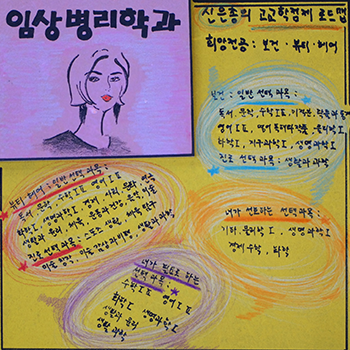 임상병리학과
신은총의 고교학점제 로드맵
희망전공 : 보건 · 뷰티 · 헤어
보건 : 일반 선택 과목 :
독서, 문학, 수학ⅠⅡ, 기하, 확률과 통계
영어ⅠⅡ, 영어 독해와 작문, 물리학Ⅰ,
화학Ⅰ, 지구과학Ⅰ, 생명과학Ⅰ
진로 선택 과목 : 생활과 과학
뷰티 헤어 : 일반 선택 과목 :
독서, 문학, 수학ⅠⅡ 영어ⅠⅡ
화학Ⅰ, 생명과학Ⅰ, 경제, 사회 문화, 연극
생활과 윤리, 미술,
진로 선택 과목 :
미술 창작, 미술 감상과 비평, 생활과 과학
내가 선호하는 선택 과목 :
기하, 물리학Ⅰ, 생명과학Ⅰ
경제 수학, 화학
내가 필요로 하는
선택 과목 :
수학ⅠⅡ 영어ⅠⅡ
화학Ⅰ 생명과학Ⅰ
생활과 윤리
생활 과학